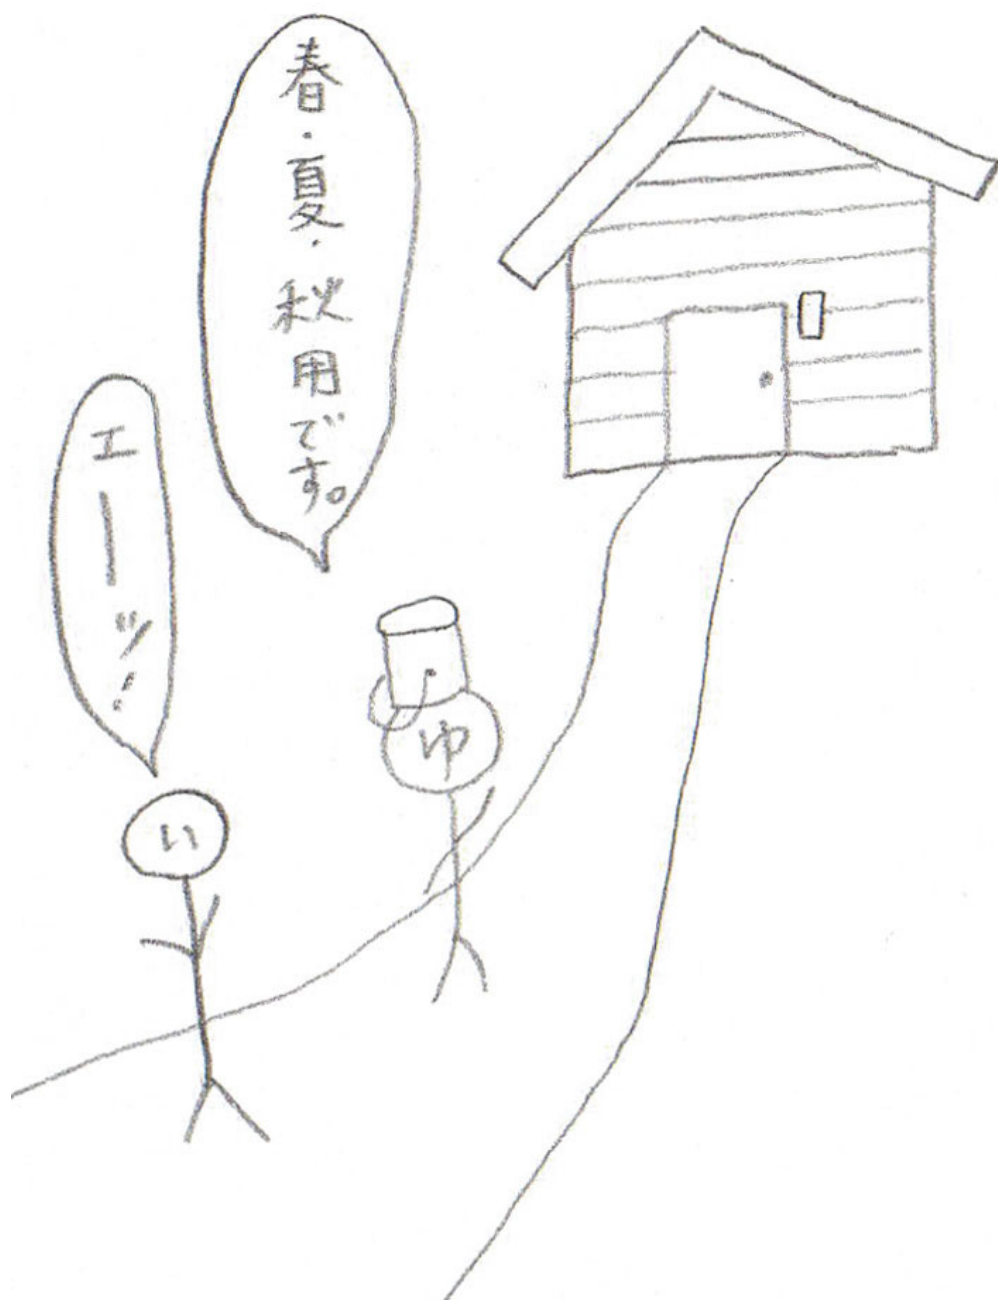 春・夏・秋用です。
エーッ!
ゆ
い